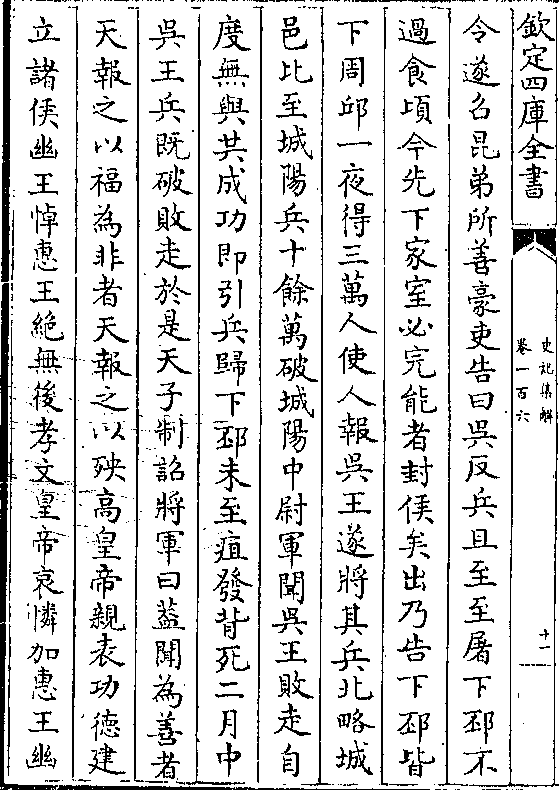 欽定四庫全書
史記集解
卷一百六
十一
令遂召昆弟所善豪吏告曰吳反兵且至至屠下邳不
過食頃今先下家室必完能者封侯矣出乃告下邳皆
下周邱一夜得三萬人使人報吳王遂將其兵北略城
邑比至城陽兵十餘萬破城陽中尉軍聞吳王敗走自
度無與共成功即引兵歸下邳未至疽發背死二月中
吳王兵既破敗走於是天子制詔將軍曰蓋聞為善者
天報之以福為非者天報之以殃高皇帝親表功德建
立諸侯幽王悼惠王絶無後孝文皇帝哀憐加惠王幽